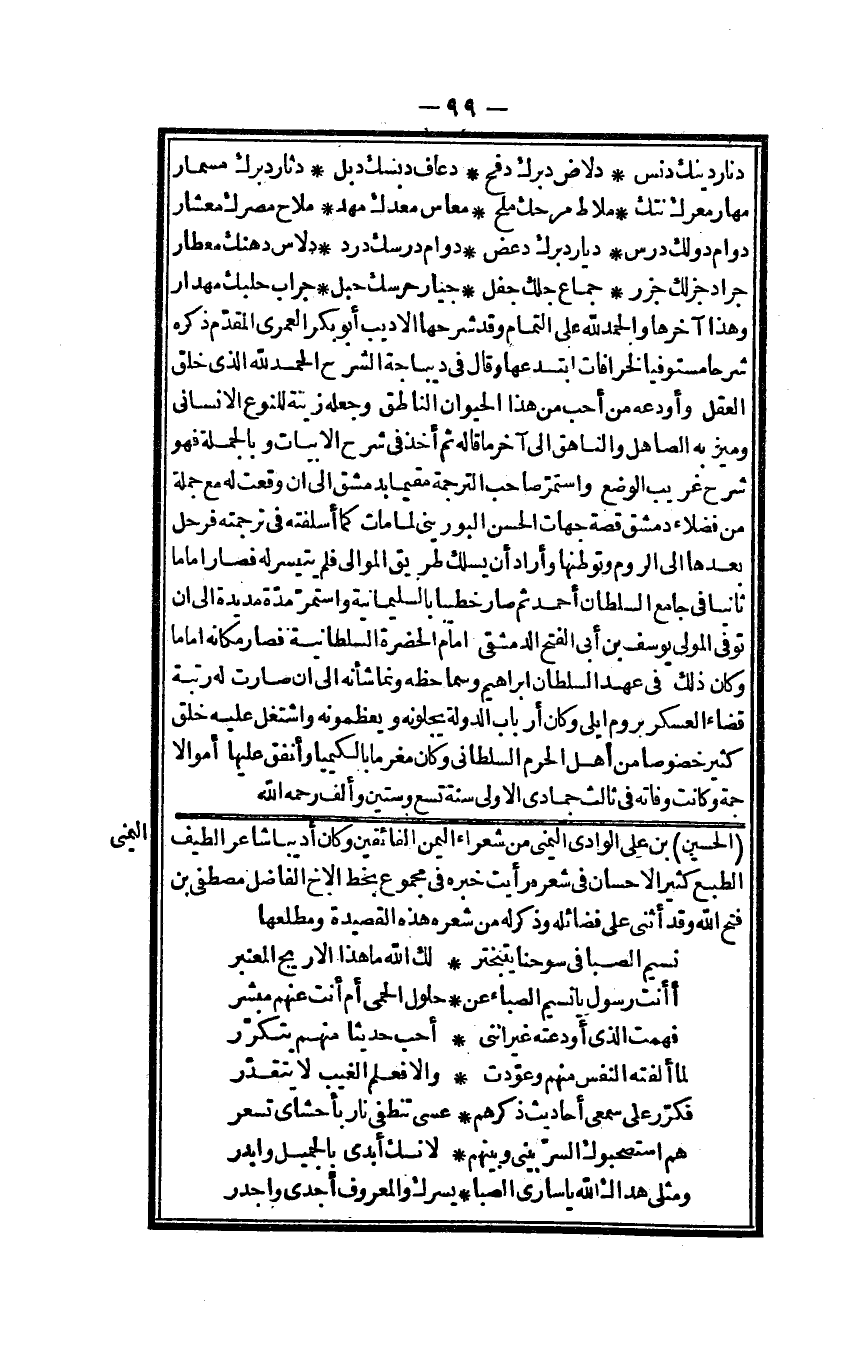 — ٩٩ —
دنار دينك دنس * دلاض دبرك دفح * دعاف دبسك دبل * دثار دبرك مسمار
مهار معرك نتك * ملاط مرحك ملح * معاس معدك مهد * ملاح مصرك معشار
دوام دولك درس * ديار دبرك دعض * دوام درسك درد * دلاس دهنك معطار
جراد جزلك جزر * جماع جلك جفل * جنيار جرسك حبل * جراب حلبك مهدار
وهذا آخرها والحمد لله على التمام وقد شرحها الاديب أبو بكر العمرى المقدّم ذكره
شرحا مستوفيا لخرافات ابتدعها وقال فى ديباجة الشرح الحمد لله الذى خلق
العقل وأودعه من أحب من هذا الحيوان الناطق وجعله زينة للنوع الانسانى
وميز به الصاهل والناهق الى آخر ما قاله ثم أخذ فى شرح الابيات وبالجملة فهو
شرح غريب الوضع واستمرّ صاحب الترجمة مقيما بدمشق الى ان وقعت له مع جملة
من فضلاء دمشق قصة جهات الحسن البورينى لما مات كما أسلفته فى ترجمته فرحل
بعدها الى الروم وتوطنها وأراد أن يسلك طريق الموالى فلم يتيسر له فصار اماما
ثانيا فى جامع السلطان أحمد ثم صار خطيبا بالسليمانية واستمرّ مدّة مديدة الى ان
توفى المولى يوسف بن أبى الفتح الدمشقى امام الحضرة السلطانية فصار مكانه اماما
وكان ذلك فى عهد السلطان ابراهيم وسما حظه ونما شأنه الى ان صارت له رتبة
قضاء العسكر بروم ايلى وكان أرباب الدولة يجلونه ويعظمونه واشتغل عليه خلق
كثير خصوصا من أهل الحرم السلطانى وكان مغرما بالكيميا وأنفق عليها أموالا
جمة وكانت وفاته فى ثالث جمادى الاولى سنة تسع وستين وألف رحمه الله
اليمنى
(الحسين) بن على الوادى اليمنى من شعراء اليمن الفائقين وكان أديبا شاعرا لطيف
الطبع كثير الاحسان فى شعره رأيت خبره فى مجموع بخط الاخ الفاضل مصطفى بن
فتح الله وقد أثنى على فضائله وذكر له من شعره هذه القصيدة ومطلعها
نسيم الصبا فى سوحنا يتبختر * لك الله ما هذا الاريج المعنبر
أأنت رسول يا نسيم الصباء عن * حلول الحمى أم أنت عنهم مبشر
فهمت الذى أودعته غير اننى * أحب حديثا منهم يتكرّر
لما ألفته النفس منهم وعوّدت * والا فعلم الغيب لا يتقدّر
فكرّر على سمعى أحاديث ذكرهم * عسى تنطفى نار بأحشاى تسعر
هم استصحبوك السرّ بينى وبينهم * لانك أبدى بالجميل وابدر
ومثلى هداك الله يا سارى الصبا * يسرك والمعروف أجدى واجدر